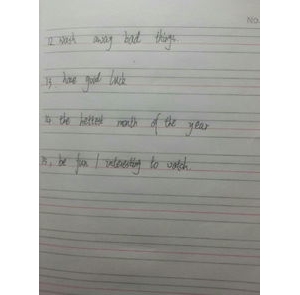 No.
12 wash away bad things.
13, have good luck
14 the hottest month of the year
15, be fun / interesting to watch.